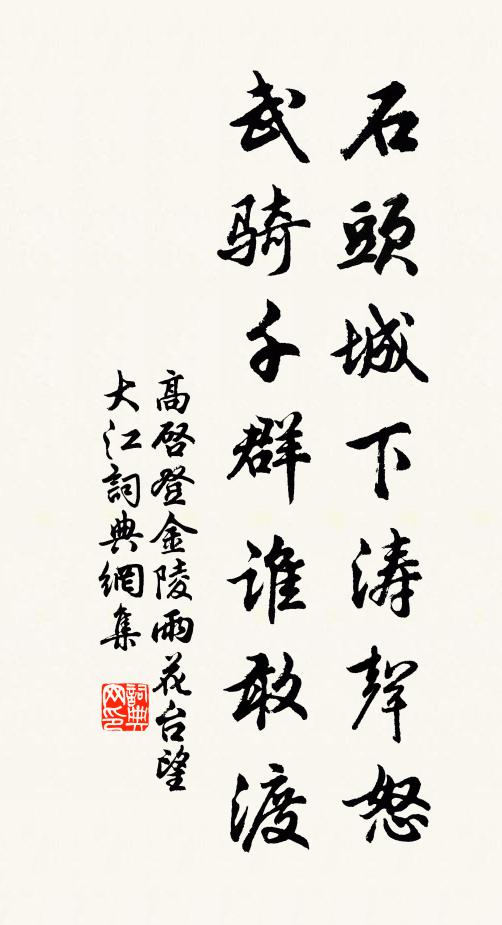 石頭城下濤聲怒
武騎千群誰敢渡
高啓登金陵雨花台望
大江詞典網集
詞典网印